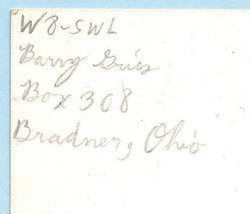 W8-SWL
Barry Gries
Box 308
Bradner, Ohio